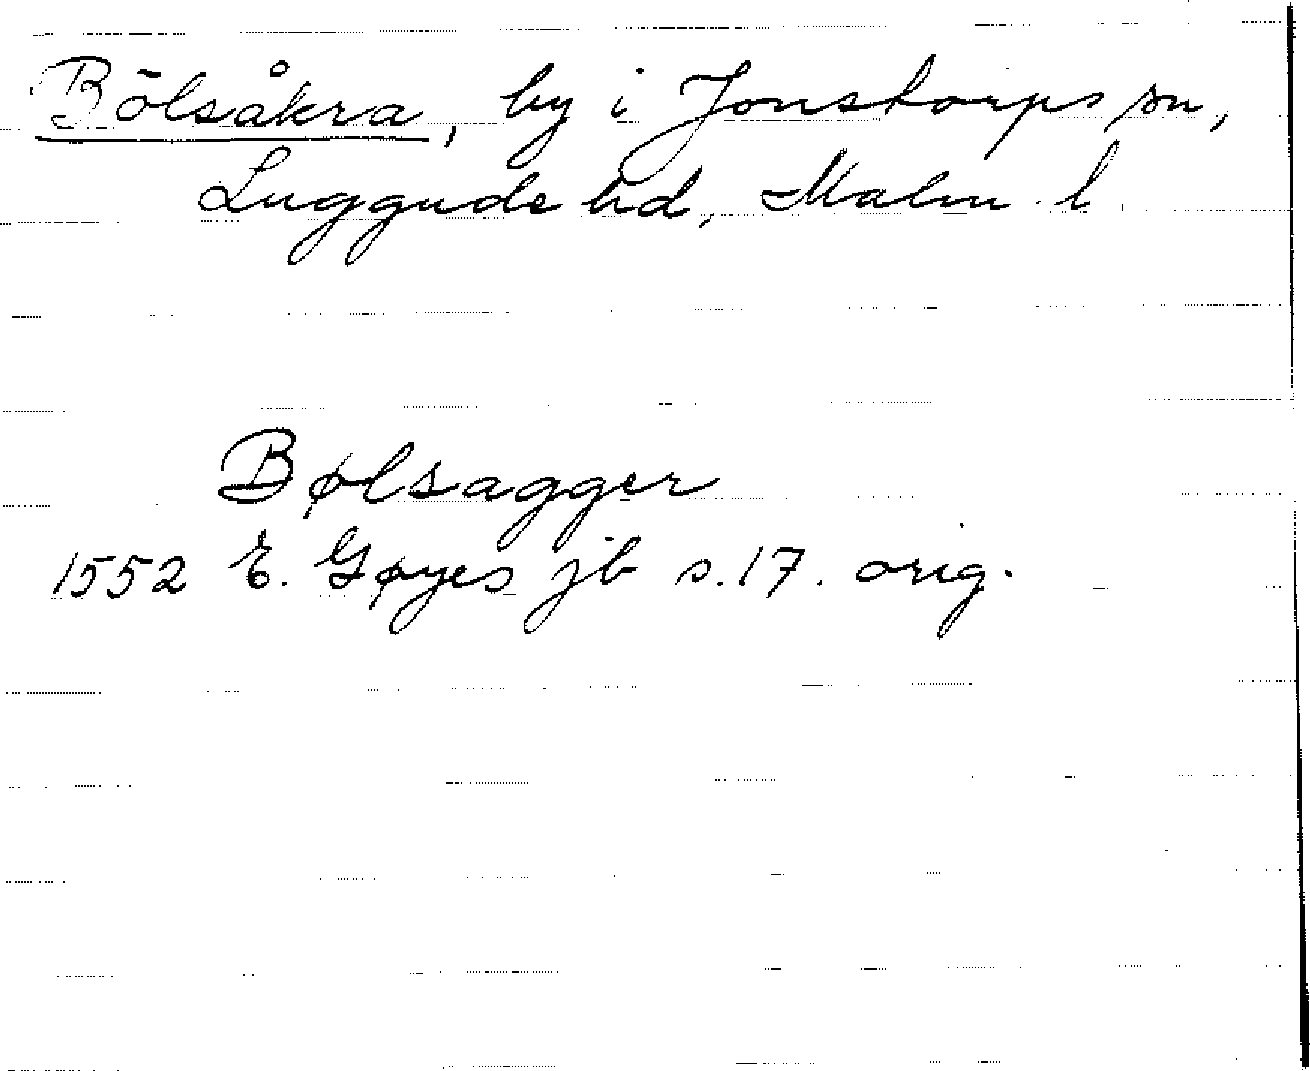 Bölsåkra, by i Jonstorps sn,
Luggude hd, Malm. l
Bølsagger
1552 E. Gøyes jb s. 17. orig.